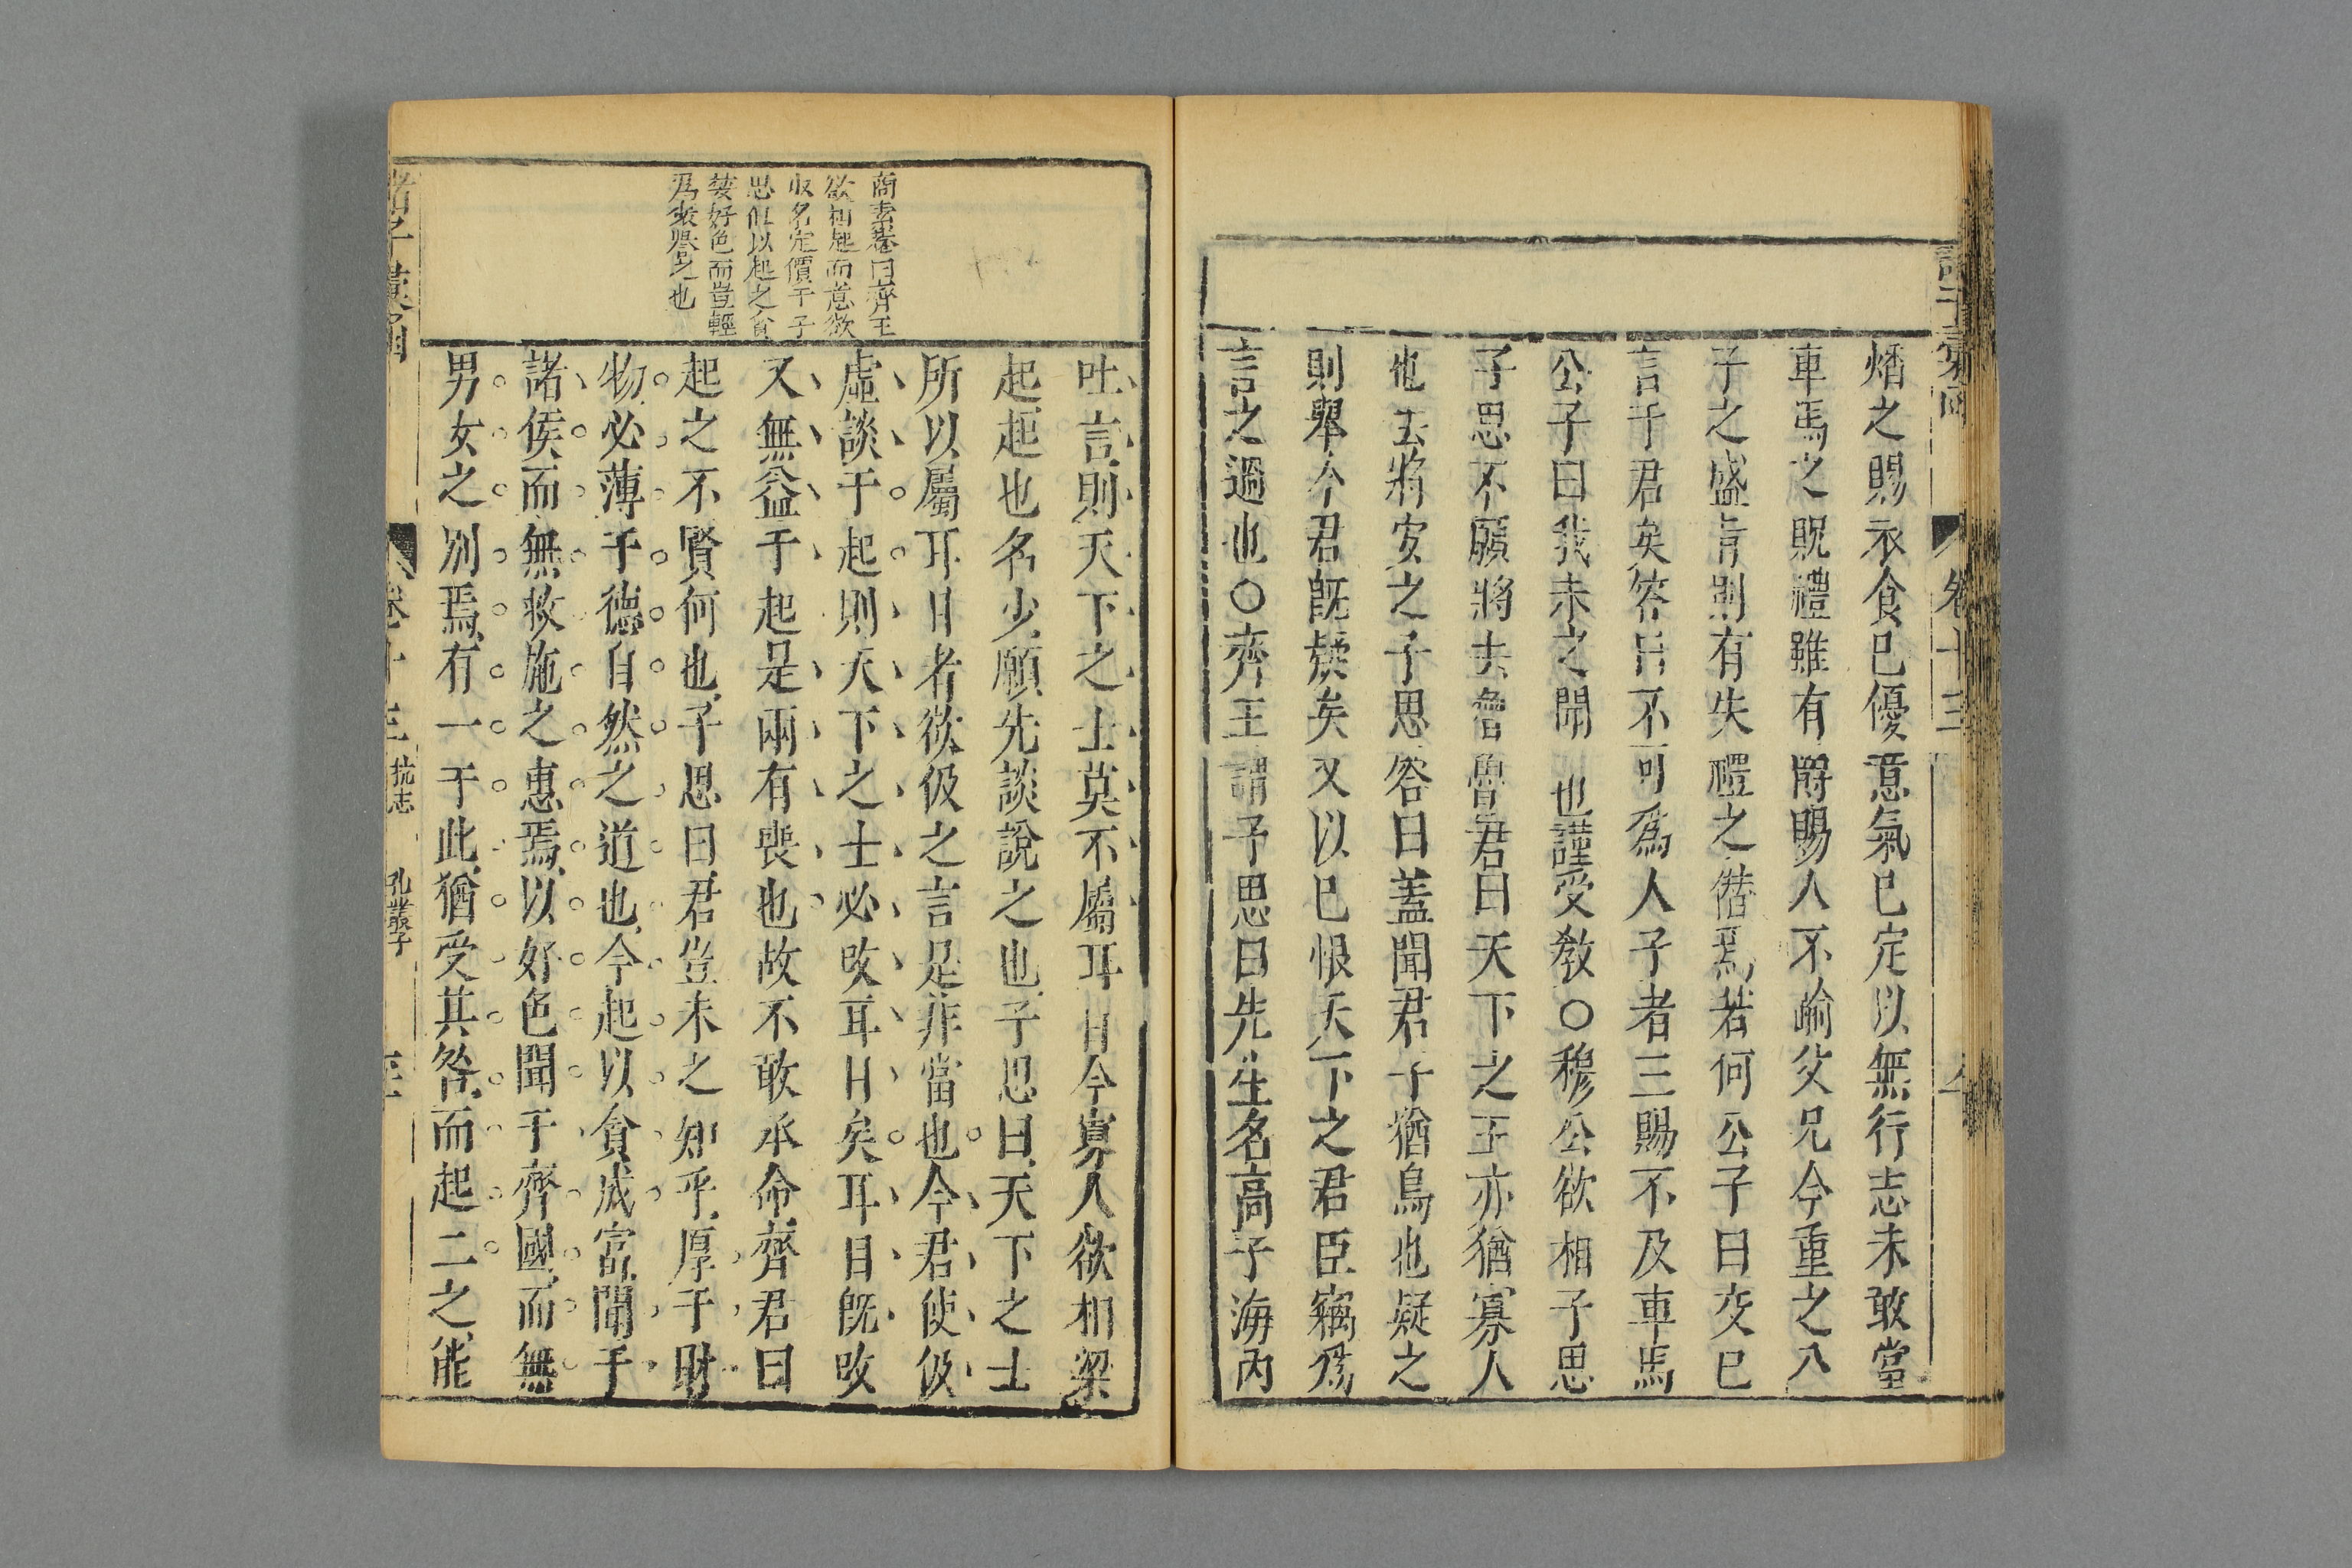 燔之賜衣食已優意氣已定以無行志未敢當
車馬之貺禮雖有爵賜人不踰父兄今重之以
子之盛旨則有失禮之僭焉若何公子曰交已
言于君矣答曰不可爲人子者三賜不及車馬
公子曰我未之聞也謹受教○穆公欲相子思
子思不願將去魯魯君曰天下之王亦猶寡人
也去將安之子思答曰蓋聞君子猶鳥也疑之
則舉今君既疑矣又以已恨天下之君臣竊爲
言之過也○齊王謂子思曰先生名高于海內
吐言則天下之士莫不屬耳目今寡人欲相梁
起起也名少願先談說之也子思曰天下之士
所以屬耳目者欲伋之言是非當也今君使伋
虛談于起則天下之士必改耳目矣耳目既改
又無益于起是兩有喪也故不敢承命齊君曰
起之不賢何也子思曰君豈未之知乎厚于財
物必薄于德自然之道也今起以貪成富聞于
諸侯而無救施之惠焉以好色聞于齊國而無
男女之別焉有一于此猶受其咎而起二之能
商素菴曰齊王
欲相起而意欲
收名定價于子
思但以起之貪
婪好色而豈輕
爲衆譽之也
卷十三
卷十三 抗志 孔叢子